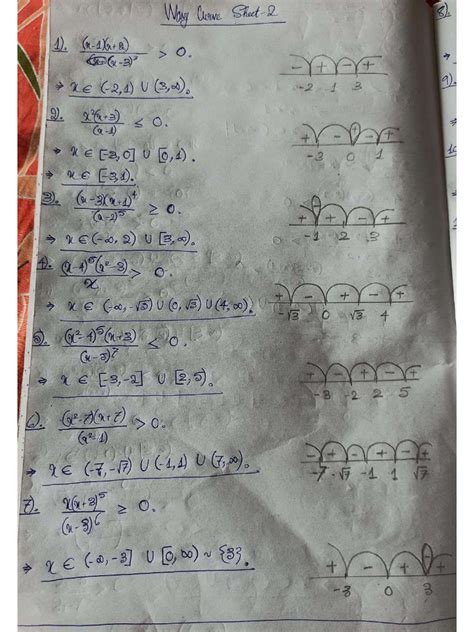 Wavy Curve Sheet-2
8).
1). (x-1)(x+2) / (x-3)³ > 0.
- + - +
-2 1 3
→ x ∈ (-2,1) ∪ (3,∞).
9).
2. x²(x+3) / (x-1) ≤ 0.
+ - - +
-3 0 1
→ x ∈ [-3,0] ∪ [0,1).
→ x ∈ [-3,1).
3). (x-3)(x+1)⁴ / (x-2)⁵ ≥ 0.
+ + - +
-1 2 3
→ x ∈ (-∞,2) ∪ [3,∞).
4. (x-4)⁵(x²-3) / x > 0.
+ - + - +
-√3 0 √3 4
→ x ∈ (-∞,-√3) ∪ (0,√3) ∪ (4,∞).
5. (x²-4)⁵(x+3) / (x-5)⁷ ≤ 0.
+ - + - +
-3 -2 2 5
→ x ∈ [-3,-2] ∪ [2,5).
6). (x²-7)(x+7) / (x²-1) > 0.
- + - + - +
-7 -√7 -1 1 √7
→ x ∈ (-7,-√7) ∪ (-1,1) ∪ (7,∞).
7). x(x+3)⁵ / (x-3)⁶ ≥ 0.
+ - + +
-3 0 3
→ x ∈ (-∞,-3] ∪ [0,∞) ~ {3}.